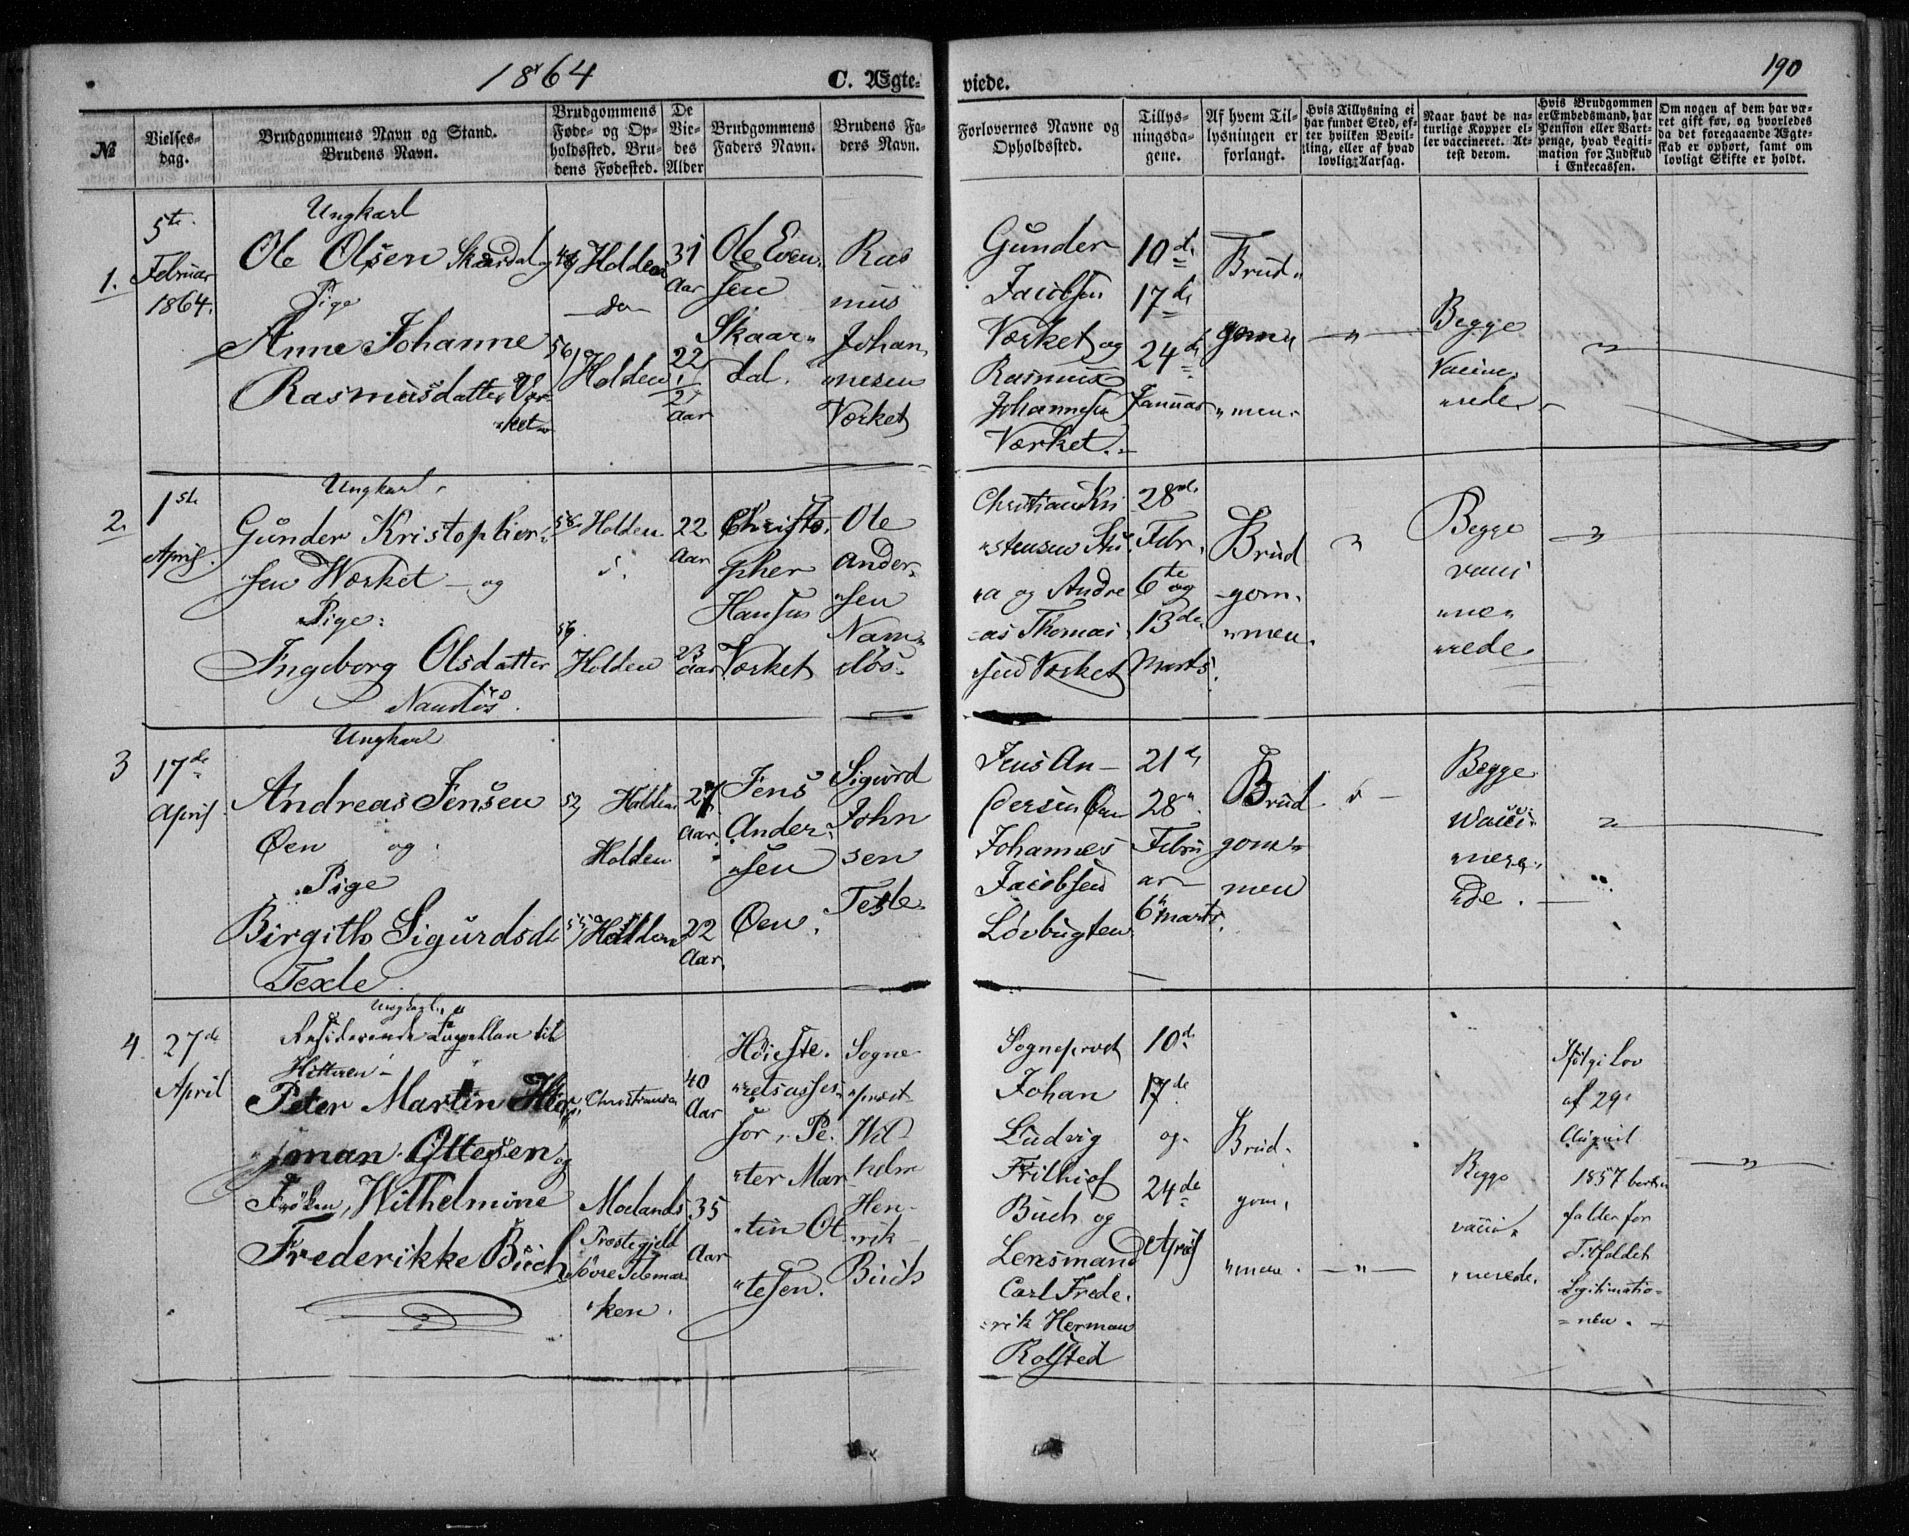 1864
C. Ægte-
viede.
190
№
Vielses-
dag.
Brudgommens Navn og Stand.
Brudens Navn.
Brudgommens
Føde- og Op-
holdssted. Bru-
dens Fødested.
De
Vie-
des
Alder
Brudgommens
Faders Navn.
Brudens Fa-
ders Navn.
Forlovernes Navne og
Opholdssted.
Tillys-
ningsda-
gene.
Af hvem Til-
lysningen er
forlangt.
Hvis Tillysning ei
har fundet Sted, ef-
ter hvilken Bevil-
ling, eller af hvad
lovlig Aarsag.
Naar havt de na-
turlige Kopper el-
ler vaccineret. At-
test derom.
Hvis Brudgommen
er Embedsmand, har
Pension eller Vart-
penge, hvad Legiti-
mation for Indskud
i Enkecassen.
Om nogen af dem har væ-
ret gift før, og hvorledes
da det foregaaende Ægte-
skab er ophørt, samt om
lovligt Skifte er holdt.
1.
5te
Februar
1864.
Ungkarl
Ole Olsen Skaardal og
Pige
Anne Johanne
Rasmusdatter Vær-
ket
Holden
do
56/ Holden
31
Aar
22
1/2
Aar
Ole Even
sen
Skaar
dal.
Ras
mus
Johan
nesen
Værket
Gunder
Jacobsen
Værket og
Rasmus
Johannesen
Værket.
10de
17de
24de
Januar
Brud
gom
men
Begge
Vaccine
rede
2.
1ste
April.
Ungkarl
Gunder Kristopher
sen Værket og
Pige:
Ingeborg Olsdatter
Namløs.
58 Holden
59
Holden
22
Aar
23
Aar
Christo
pher
Hansen
Værket
Ole
Ander
sen
Nam
løs
Christian Kri
stensen Stu
a og Andre
as Thomas
sen Værket
28de
Febr.
6te og
13de
Marts.
Brud
gom
men.
Begge
vacci
ne
rede
3
17de
April
Ungkarl
Andreas Jensen
Øen og
Pige
Birgithe Sigurdsd
Texle
Holden
Holden
Holden
27
Aar.
22
Aar.
Jens
Ander
sen
Øen.
Sigurd
John
sen
Texle
Jens An-
dersen Øen
Johannes
Jacobsen
Løvbugten
21de
28
Febru
ar
6 Marts.
Brud
gom
men
Begge
Vacci
nere
de.
4.
27de
April
Ungkarl
Residerende Capellan til
Hitteren
Peter Martin
Ottesen og
Frøken Wilhelmine
Frederikke Buch
Christiansan
Moelands
Præstegjeld
Øvre Telemar
ken.
40
Aar
35
Aar
Høieste
retsasses
sor Pe
ter Mar
tin Ot
tesen.
Sogne
prest
Wil
helm
Hen
rik
Buch
Sogneprest
Johan
Ludvig
Frithiof
Buch og
Lensmand
Carl Frede
rik Herman
Rolsted
10de
17de
og
24de
April
Brud
gom
men
Begge
vacci
nerede.
Ifølge Lov
af 29
August
1857 bort
falder for
Tilfældet
Legitimatio
nen.